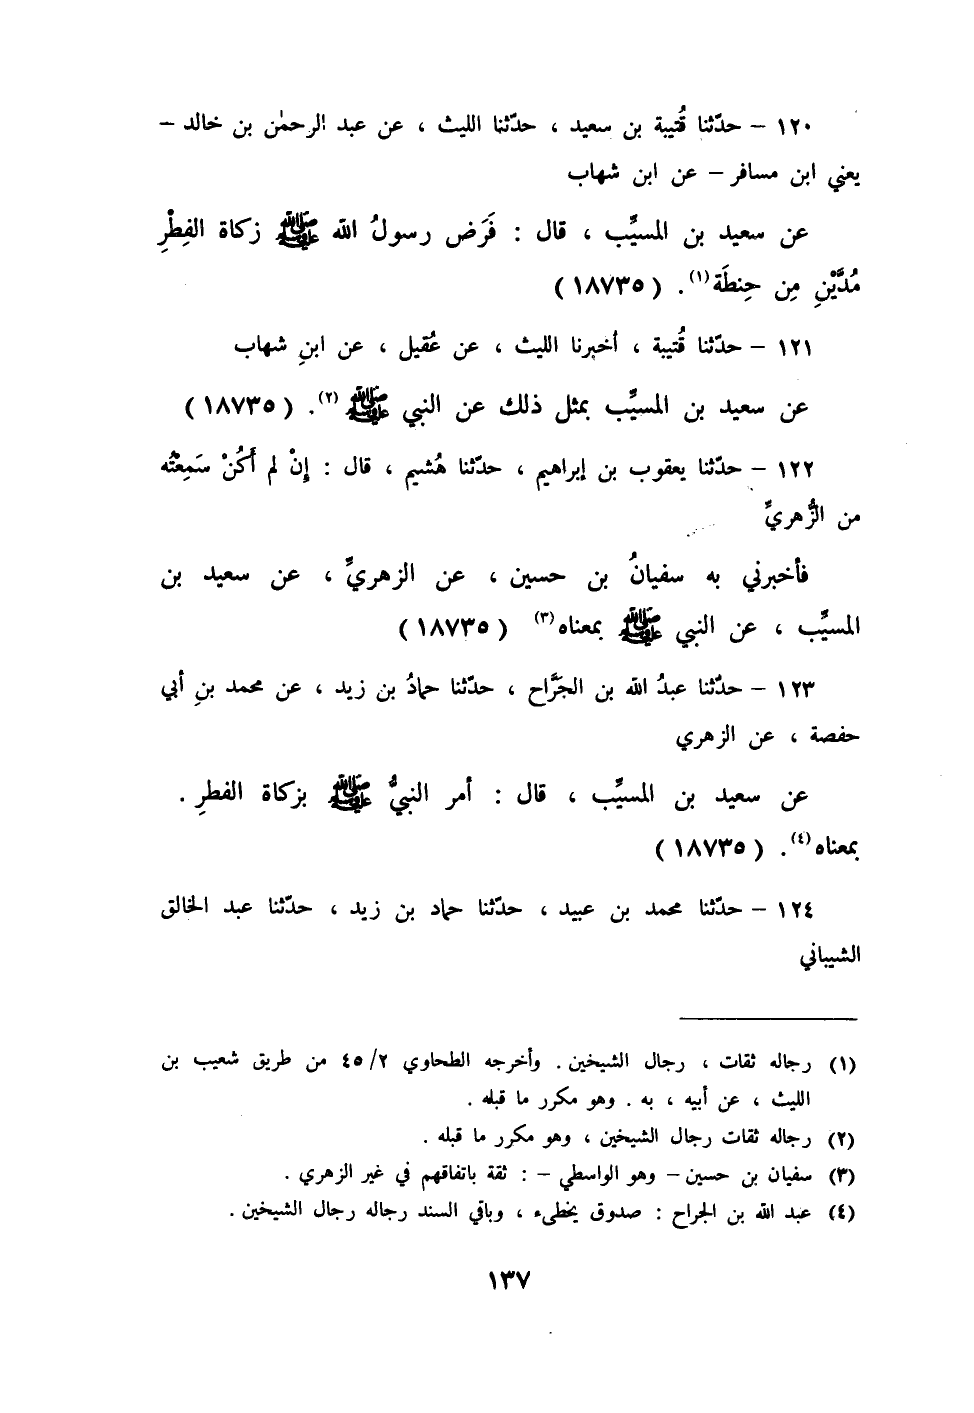 ١٢٠ – حدّثنا قُتيبة بن سعيد ، حدّثنا الليث ، عن عبد الرحمٰن بن خالد –
يعني ابن مسافر – عن ابن شهاب
عن سعيد بن المسيِّب ، قال : فَرَض رسولُ الله ﷺ زكاة الفِطْرِ
مُدَّيْنِ مِن حِنطَة(١) . ( ١٨٧٣٥ )
١٢١ – حدّثنا قُتيبة ، أخبرنا الليث ، عن عُقيل ، عن ابنِ شهاب
عن سعيد بن المسيِّب بمثل ذلك عن النبي ﷺ (٢) . ( ١٨٧٣٥ )
١٢٢ – حدّثنا يعقوب بن إبراهيم ، حدّثنا هُشيم ، قال : إِنْ لم أَكُنْ سَمِعْتُه
من الزُّهريِّ
فأخبرني به سفيانُ بن حسين ، عن الزهريِّ ، عن سعيد بن
المسيِّب ، عن النبي ﷺ بمعناه(٣) ( ١٨٧٣٥ )
١٢٣ – حدّثنا عبدُ الله بن الجَرَّاح ، حدّثنا حمادُ بن زيد ، عن محمد بنِ أبي
حفصة ، عن الزهري
عن سعيد بن المسيِّب ، قال : أمر النبيُّ ﷺ بزكاة الفطرِ .
بمعناه(٤) . ( ١٨٧٣٥ )
١٢٤ – حدّثنا محمد بن عبيد ، حدّثنا حماد بن زيد ، حدّثنا عبد الخالق
الشيباني
(١) رجاله ثقات ، رجال الشيخين . وأخرجه الطحاوي ٤٥/٢ من طريق شعيب بن
الليث ، عن أبيه ، به . وهو مكرر ما قبله .
(٢) رجاله ثقات رجال الشيخين ، وهو مكرر ما قبله .
(٣) سفيان بن حسين – وهو الواسطي – : ثقة باتفاقهم في غير الزهري .
(٤) عبد الله بن الجراح : صدوق يخطىء ، وباقي السند رجاله رجال الشيخين .
١٣٧